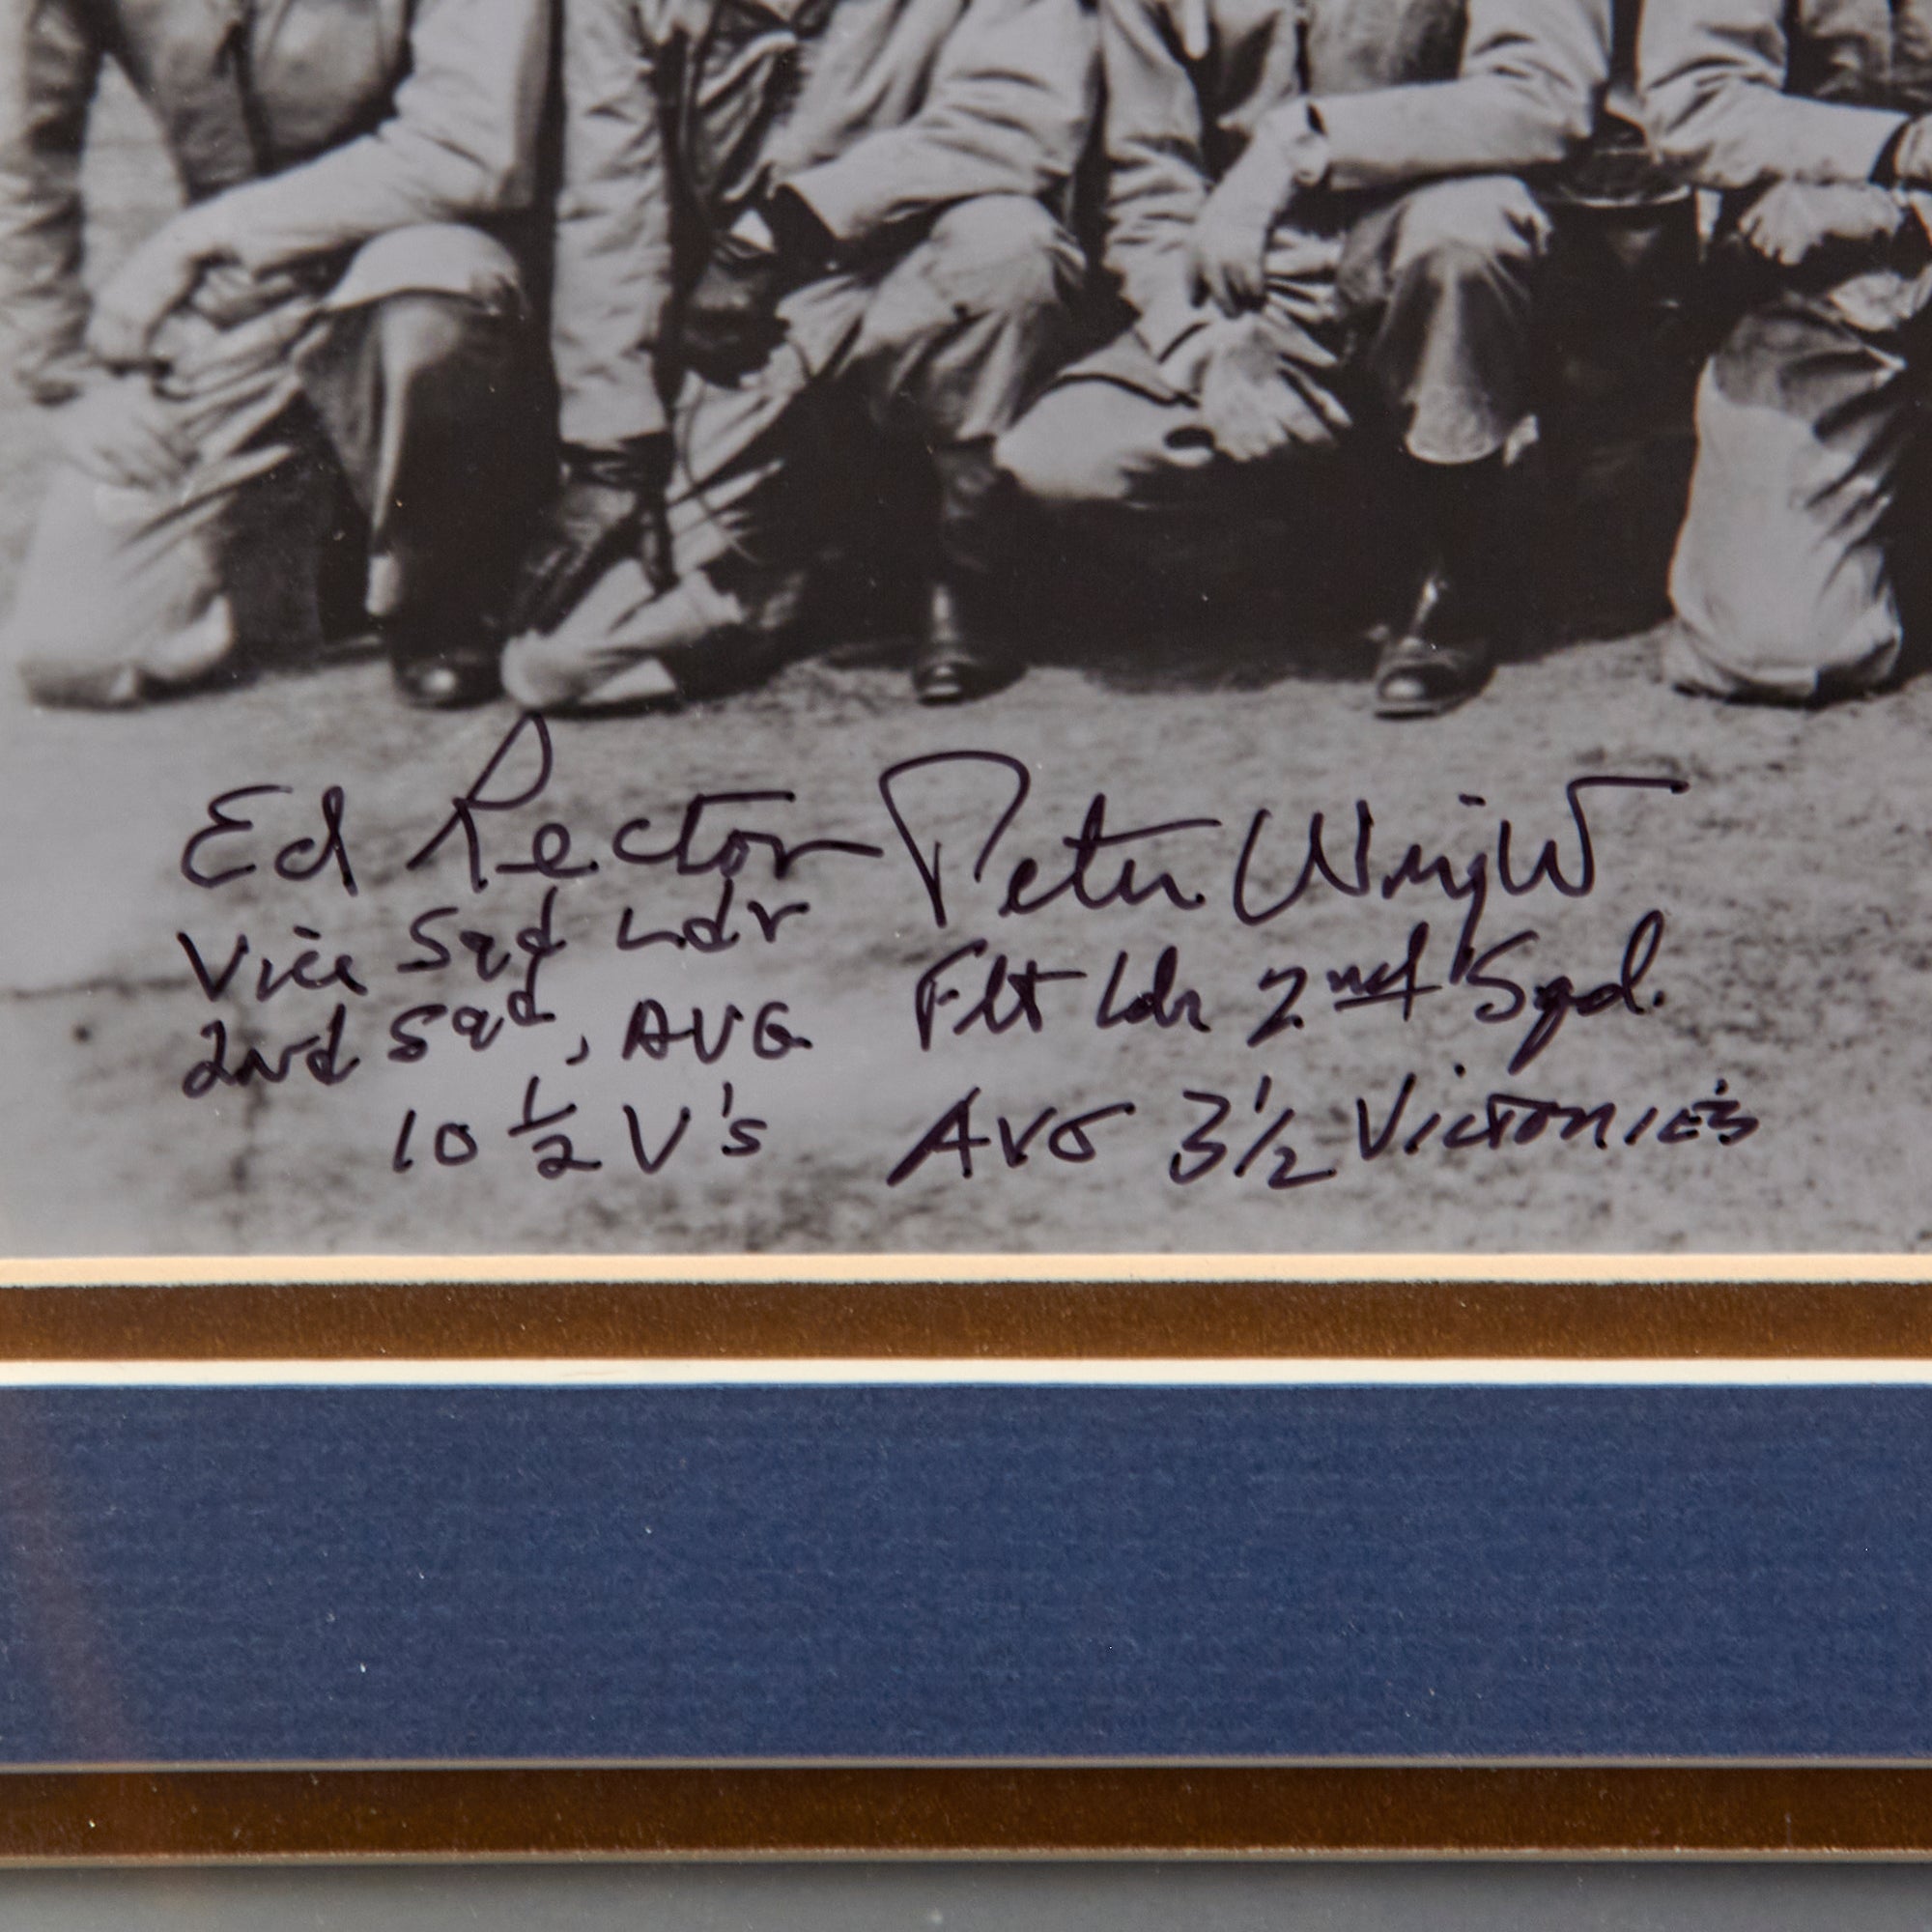 Ed Rector
Vice Sqd Ldr
2nd Sqd, AVG
10 1/2 V's
Peter Wright
Flt Ldr 2nd Sqd.
AVG 3 1/2 Victorie's